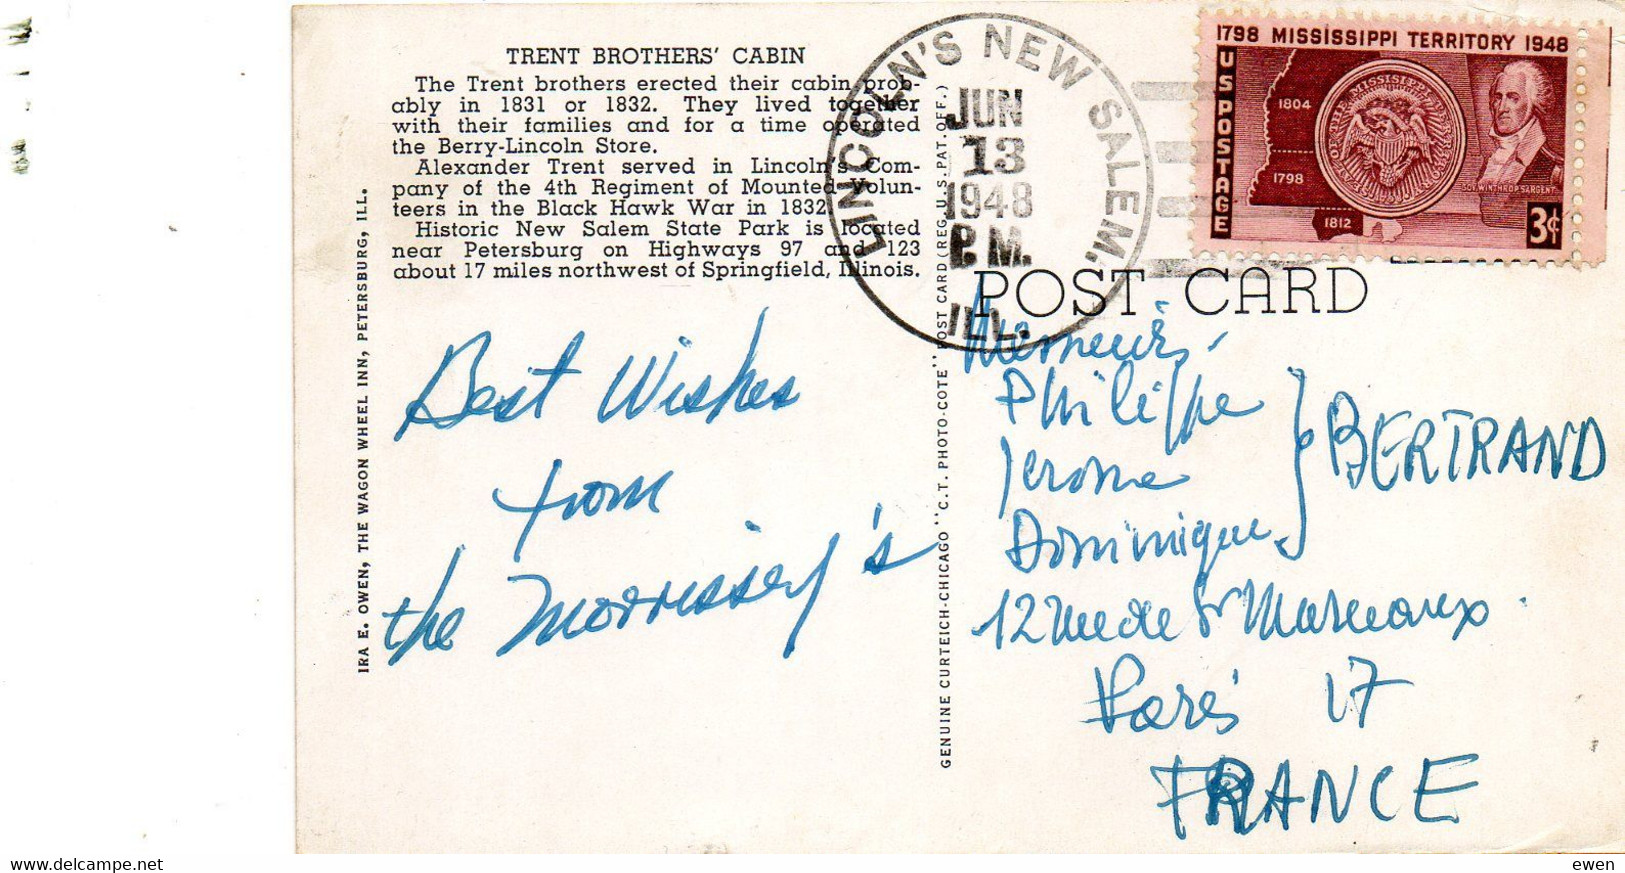 TRENT BROTHERS' CABIN
The Trent brothers erected their cabin prob-
ably in 1831 or 1832. They lived together
with their families and for a time operated
the Berry-Lincoln Store.
Alexander Trent served in Lincoln's Com-
pany of the 4th Regiment of Mounted Volun-
teers in the Black Hawk War in 1832.
Historic New Salem State Park is located
near Petersburg on Highways 97 and 123
about 17 miles northwest of Springfield, Illinois.
IRA E. OWEN, THE WAGON WHEEL INN, PETERSBURG, ILL.
Best Wishes
from
the Morrissey's
GENUINE CURTEICH-CHICAGO "C.T. PHOTO-COTE" POST CARD (REG. U.S. PAT. OFF.)
LINCOLN'S NEW SALEM.
JUN
13
1948
P.M.
ILL.
1798 MISSISSIPPI TERRITORY 1948
US POSTAGE
1804
1798
1812
GOV. WINTHROP SARGENT
3¢
POST CARD
Messieurs
Philippe
Jerome
Dominique
BERTRAND
12 rue de St Marceaux
Paris 17
FRANCE
www.delcampe.net
ewen